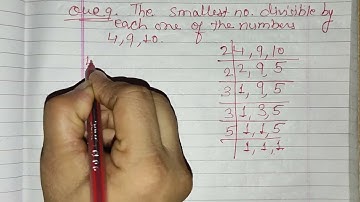 Que 9. The smallest no. divisible by
each one of the numbers
4, 9, 10.
2 4, 9, 10
2 2, 9, 5
3 1, 9, 5
3 1, 3, 5
5 1, 1, 5
1, 1, 1